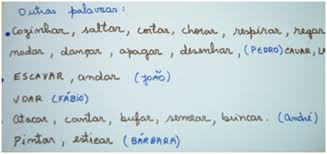 Outras palavras:
• Cozinhar, saltar, contar, chorar, respirar, regar
nadar, dançar, apagar, desenhar, (PEDRO) CAVAR, LA
ESCAVAR, andar (JOÃO)
VOAR (FÁBIO)
Atacar, cantar, bufar, semear, brincar. (André)
Pintar, esticar (BÁRBARA)